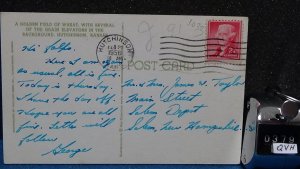 A GOLDEN FIELD OF WHEAT, WITH SEVERAL
OF THE GRAIN ELEVATORS IN THE
BACKGROUND, HUTCHINSON, KANSAS
HUTCHINSON
1956
POST CARD
Hi folks
Here I am
as usual, all is fine.
Today is Thursday.
I have the day off.
Hope you are all
fine. Letter will
follow
George
Mr. & Mrs. James W. Taylor
Main Street
Salem Depot
Salem, New Hampshire
0379
QVH